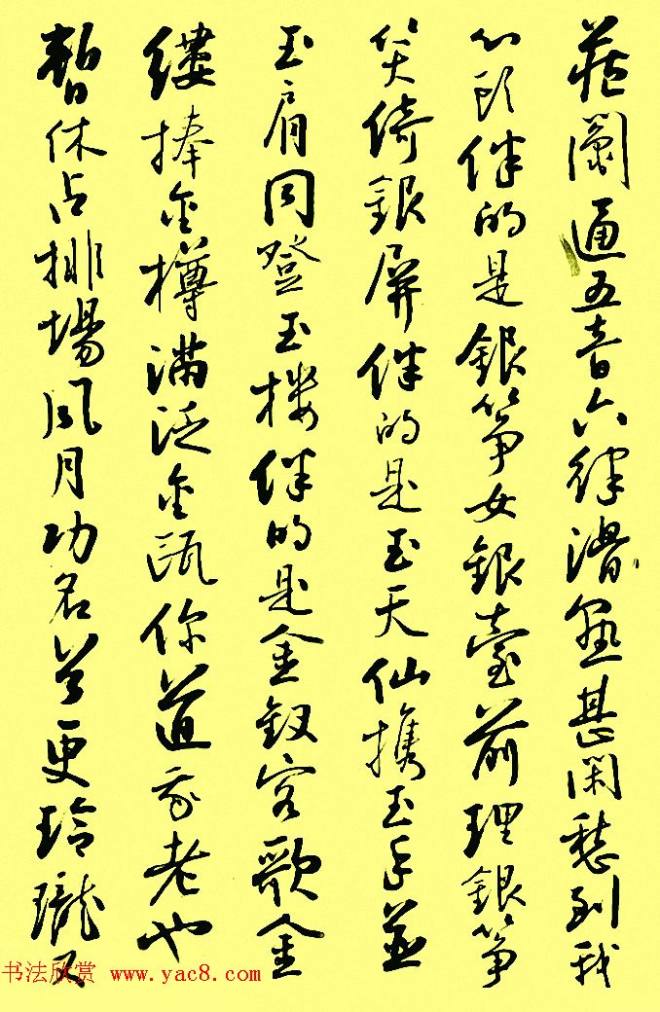 藏阄通五音六律滑熟甚閑愁到我
心頭伴的是銀筝女銀臺前理銀筝
笑倚銀屏伴的是玉天仙携玉手並
玉肩同登玉楼伴的是金釵客歌金
縷捧金樽满泛金瓯你道我老也
暫休占排場風月功名首更玲瓏又
书法欣赏 www.yac8.com